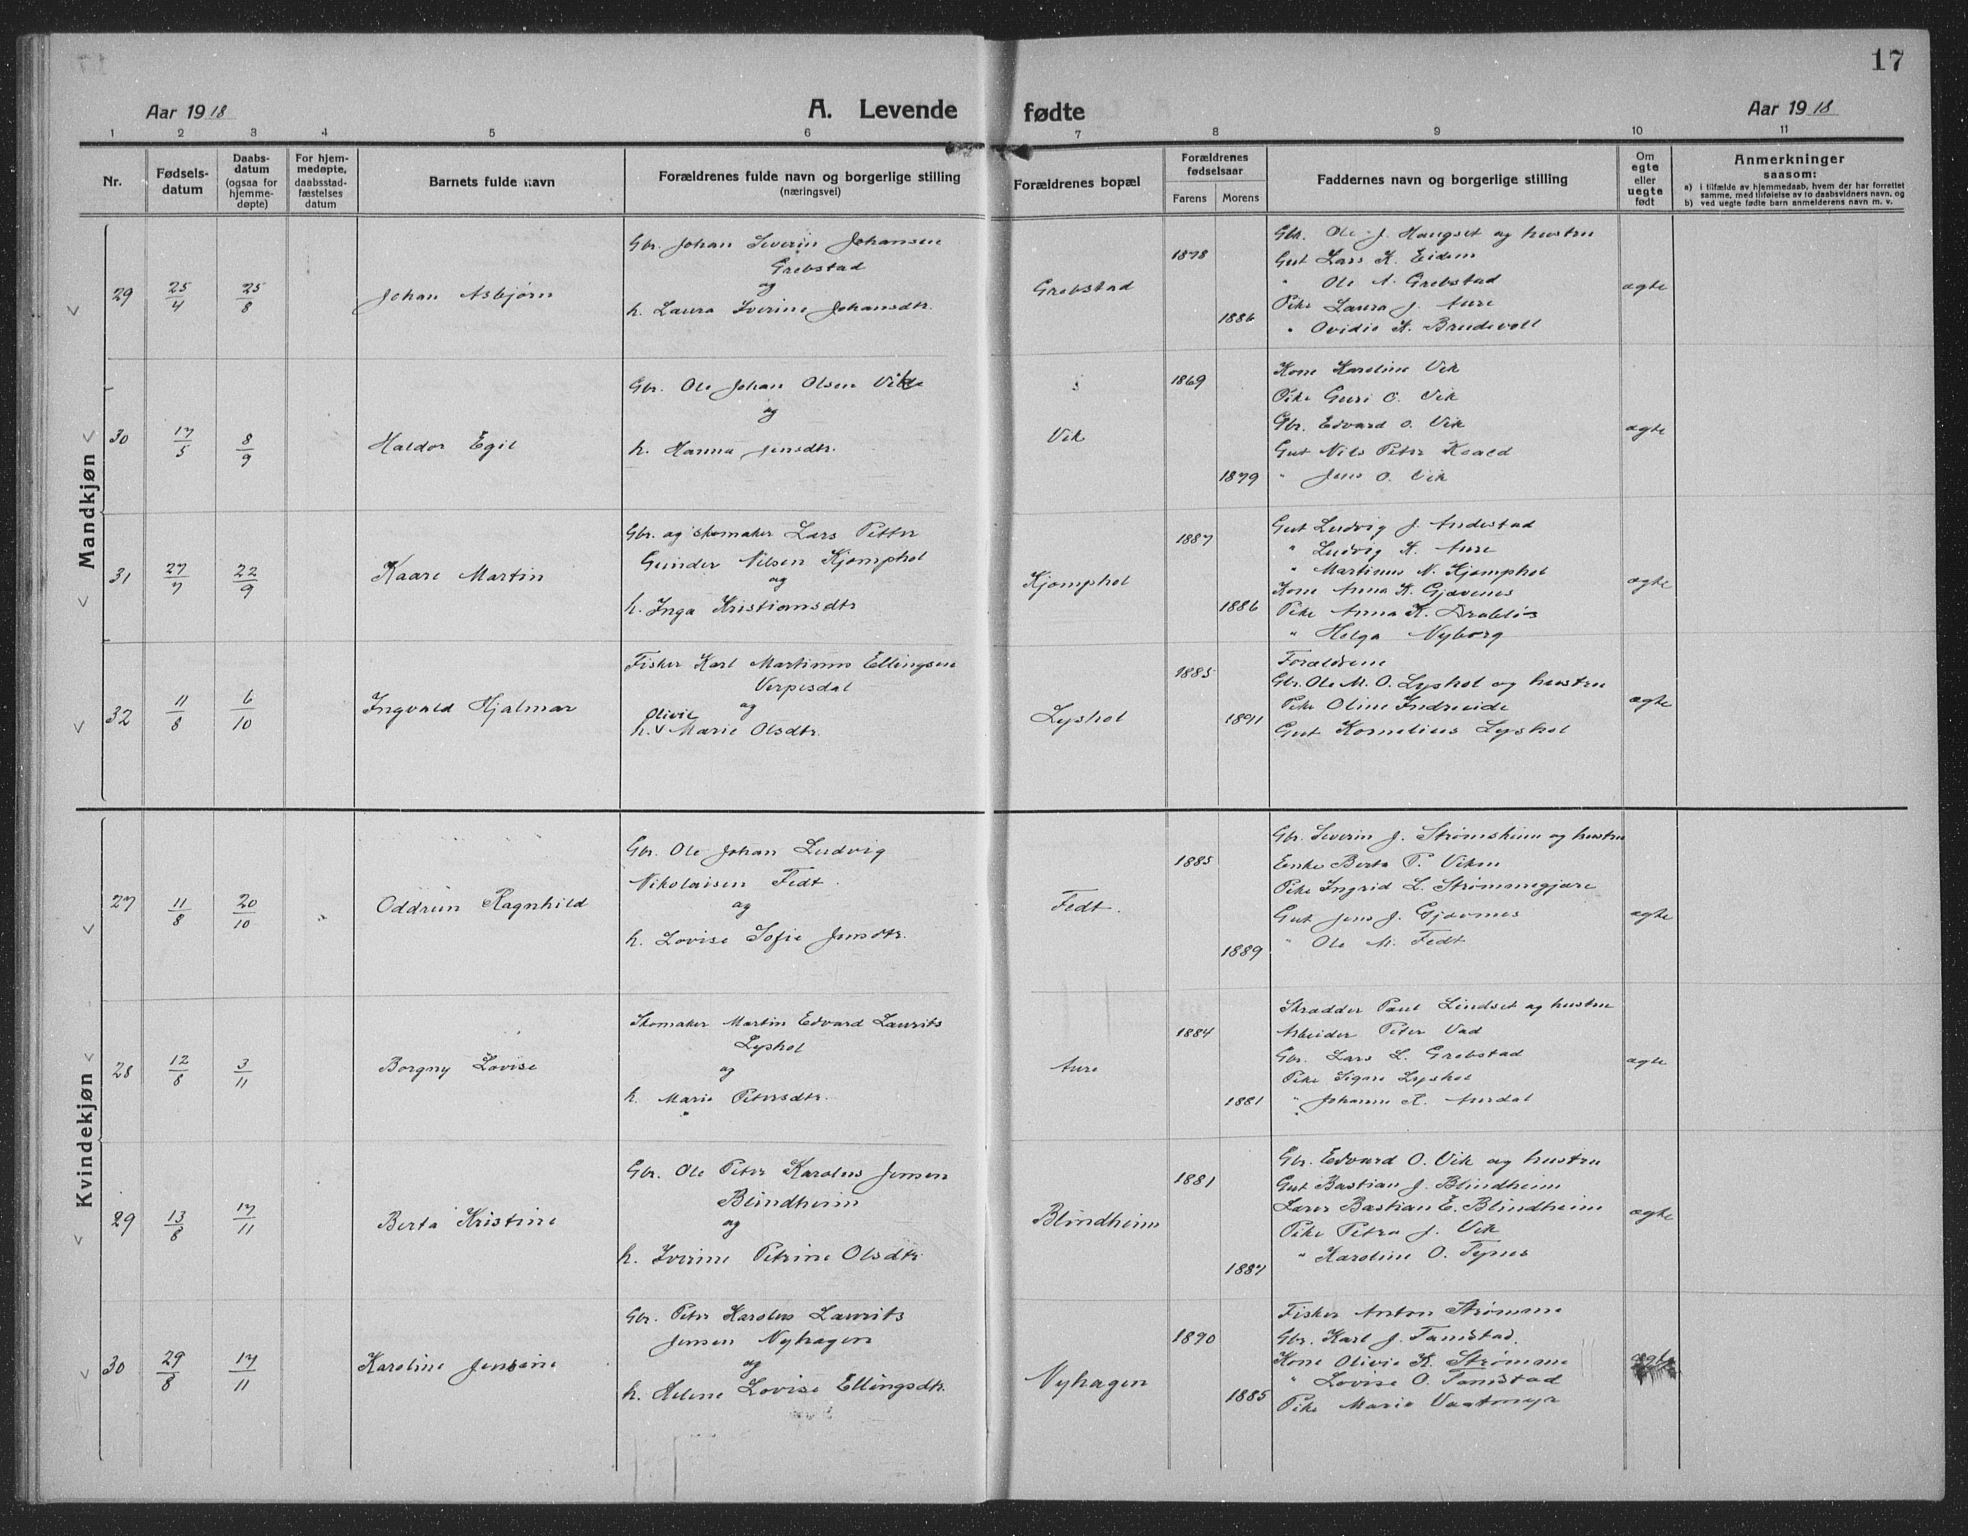 17
Aar 1918 A. Levende fødte Aar 1918
1 2 3 4 5 6 7 8 9 10 11
Nr.
Fødselsdatum
Daabsdatum (ogsaa for hjemmedøpte)
For hjemmedøpte, daabsstadfæstelses datum
Barnets fulde navn
Forældrenes fulde navn og borgerlige stilling (næringsvei)
Forældrenes bopæl
Forældrenes fødselsaar
Farens Morens
Faddernes navn og borgerlige stilling
Om egte eller uegte født
Anmerkninger saasom:
a) i tilfælde av hjemmedaab, hvem der har forrettet samme, med tilføielse av to daabsvidners navn, og
b) ved uegte fødte barn anmelderens navn m. v.
Mandkjøn
29 25/4 25/8 Johan Asbjørn
Gbr. Johan Severin Johansen
Grebstad
og
h. Laura Iverine Johansdtr.
Grebstad
1878
1886
Gbr. Ole J. Haugset og hustru
Gut Lars K. Eidem
" Ole A. Grebstad
Pike Laura J. Aure
" Ovidie K. Brudevoll
ægte
30 17/5 8/9 Haldor Egil
Gbr. Ole Johan Olsen Vik
og
h. Hanna Jensdtr.
Vik
1869
1879
Kone Karoline Vik
Pike Guri O. Vik
Gbr. Edvard O. Vik
Gut Nils Peter Roald
" Jens O. Vik
ægte
31 27/7 22/9 Kaare Martin
Gbr. og skomaker Lars Petter
Gunder Nilsen Kjemphol
og
h. Inga Kristiansdtr
Kjemphol
1887
1886
Gut Ludvig J. Andestad
" Ludvig K. Aure
" Martinus N. Kjemphol
Kone Anna K. Gjævenes
Pike Anna K. Drabløs
" Helga Nyborg
ægte
32 11/8 6/10 Ingvald Hjalmar
Fisker Karl Martinus Ellingsen
Verpesdal
og
Olivie
h. Marie Olsdtr.
Lyshol
1885
1891
Forældrene
Gbr. Ole M. O. Lyshol og hustru
Pike Oline Indreeide
Gut Kornelius Lyshol
ægte
Kvindekjøn
27 11/8 20/10 Oddrun Ragnhild
Gbr. Ole Johan Ludvig
Nikolaisen Fedt.
og
h. Lovise Sofie Jensdtr.
Fedt.
1885
1889
Gbr. Severin J. Strømsheim og hustru
Enke Berta P. Viken
Pike Ingrid L. Strømmegjære
Gut Jens J. Gjævenes
" Ole M. Fedt
ægte
28 12/8 3/11 Borgny Lovise
Skomaker Martin Edvard Laurits
Lyshol
og
h. Marie Petersdtr.
Aure
1884
1881
Skrædder Paul Lindset og hustru
Arbeider Peter Vad
Gbr. Lars L. Grebstad
Pike Signe Lyshol
" Johanne R. Aurdal
ægte
29 13/8 17/11 Berta Kristine
Gbr. Ole Peter Karolus Jensen
Blindheim
og
h. Iverine Petrine Olsdtr
Blindheim
1881
1887
Gbr. Edvard O. Vik og hustru
Gut Bastian J. Blindheim
Lærer Bastian E. Blindheim
Pike Petra J. Vik
" Karoline O. Tynes
ægte
30 29/8 17/11 Karoline Jensine
Gbr. Peter Karolus Laurits
Jensen Nyhagen
og
h. Helene Lovise Ellingsdtr.
Nyhagen
1890
1885
Fisker Anton Strømme
Gbr. Karl J. Tamstad.
Kone Olivie K. Strømme
" Lovise O. Tamstad
Pike Marie Vaatmyr
ægte